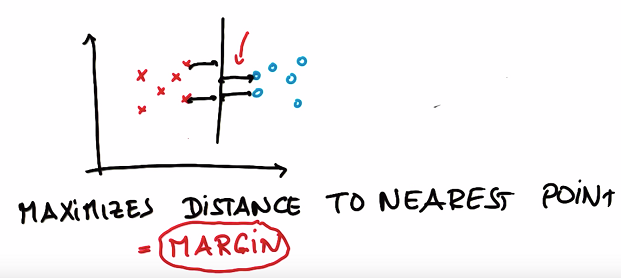 MAXIMIZES DISTANCE TO NEAREST POINT
= MARGIN